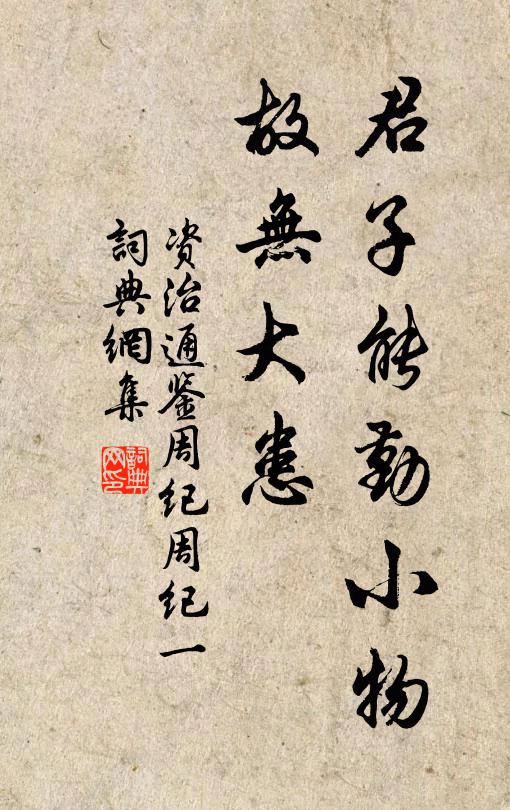 君子能勤小物
故無大患
资治通鉴周纪周纪一
詞典網集
詞典網印